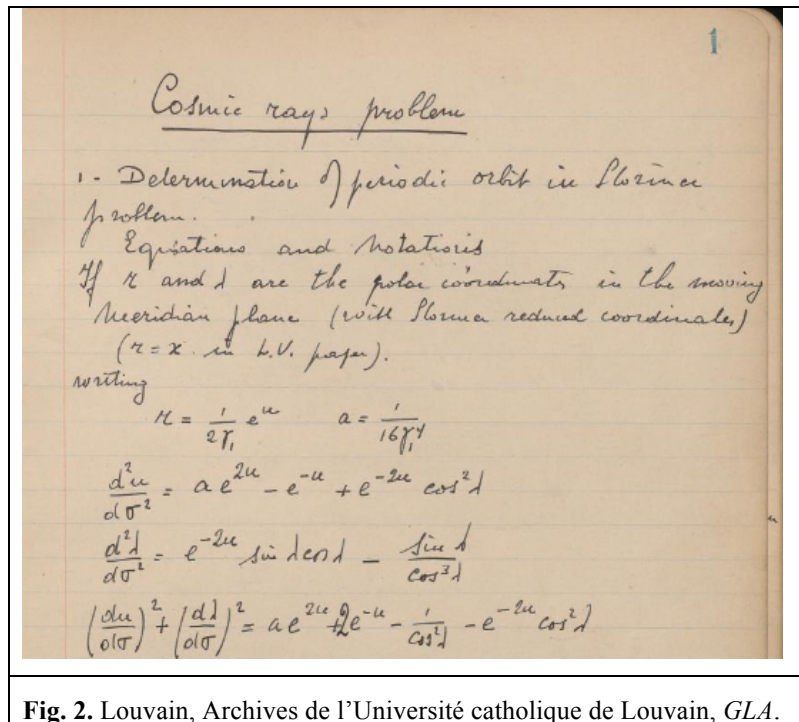 1
Cosmic rays problem
1 - Determination of periodic orbit in Störmer
problem.
Equations and notations
If r and λ are the polar coordinates in the moving
meridian plane (with Störmer reduced coordinates)
(r = x in L.V. paper).
writing
r = 1/(2γ₁) e^u    a = 1/(16γ₁⁴)
d²u/dσ² = a e^{2u} − e^{−u} + e^{−2u} cos²λ
d²λ/dσ² = e^{−2u} sin λ cos λ − sin λ/cos³λ
(du/dσ)² + (dλ/dσ)² = a e^{2u} + 2e^{−u} − 1/cos²λ − e^{−2u} cos²λ
Fig. 2. Louvain, Archives de l’Université catholique de Louvain, GLA.